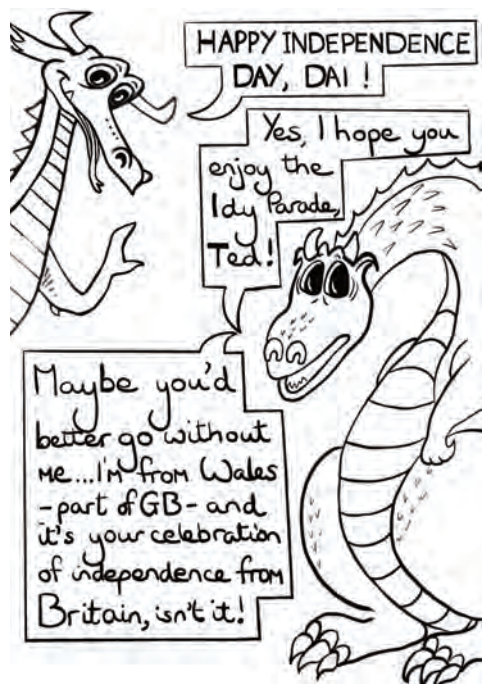 HAPPY INDEPENDENCE
DAY, DAI !
Yes, I hope you
enjoy the
Idy Parade,
Ted!
Maybe you'd
better go without
me...I'm from Wales
-part of GB- and
it's your celebration
of independence from
Britain, isn't it!